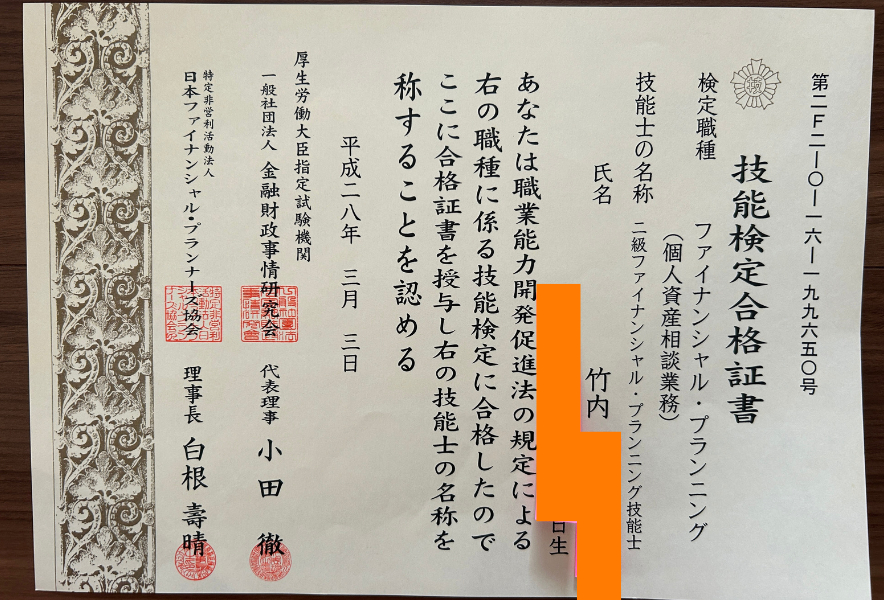 第二F二一〇一一六一一九九六五〇号
技能検定合格証書
検定職種 ファイナンシャル・プランニング
(個人資産相談業務)
技能士の名称 二級ファイナンシャル・プランニング技能士
氏名 竹内
日生
あなたは職業能力開発促進法の規定による
右の職種に係る技能検定に合格したので
ここに合格証書を授与し右の技能士の名称を
称することを認める
平成二八年 三月 三日
厚生労働大臣指定試験機関
一般社団法人 金融財政事情研究会 代表理事 小田 徹
特定非営利活動法人
日本ファイナンシャル・プランナーズ協会 理事長 白根 壽晴